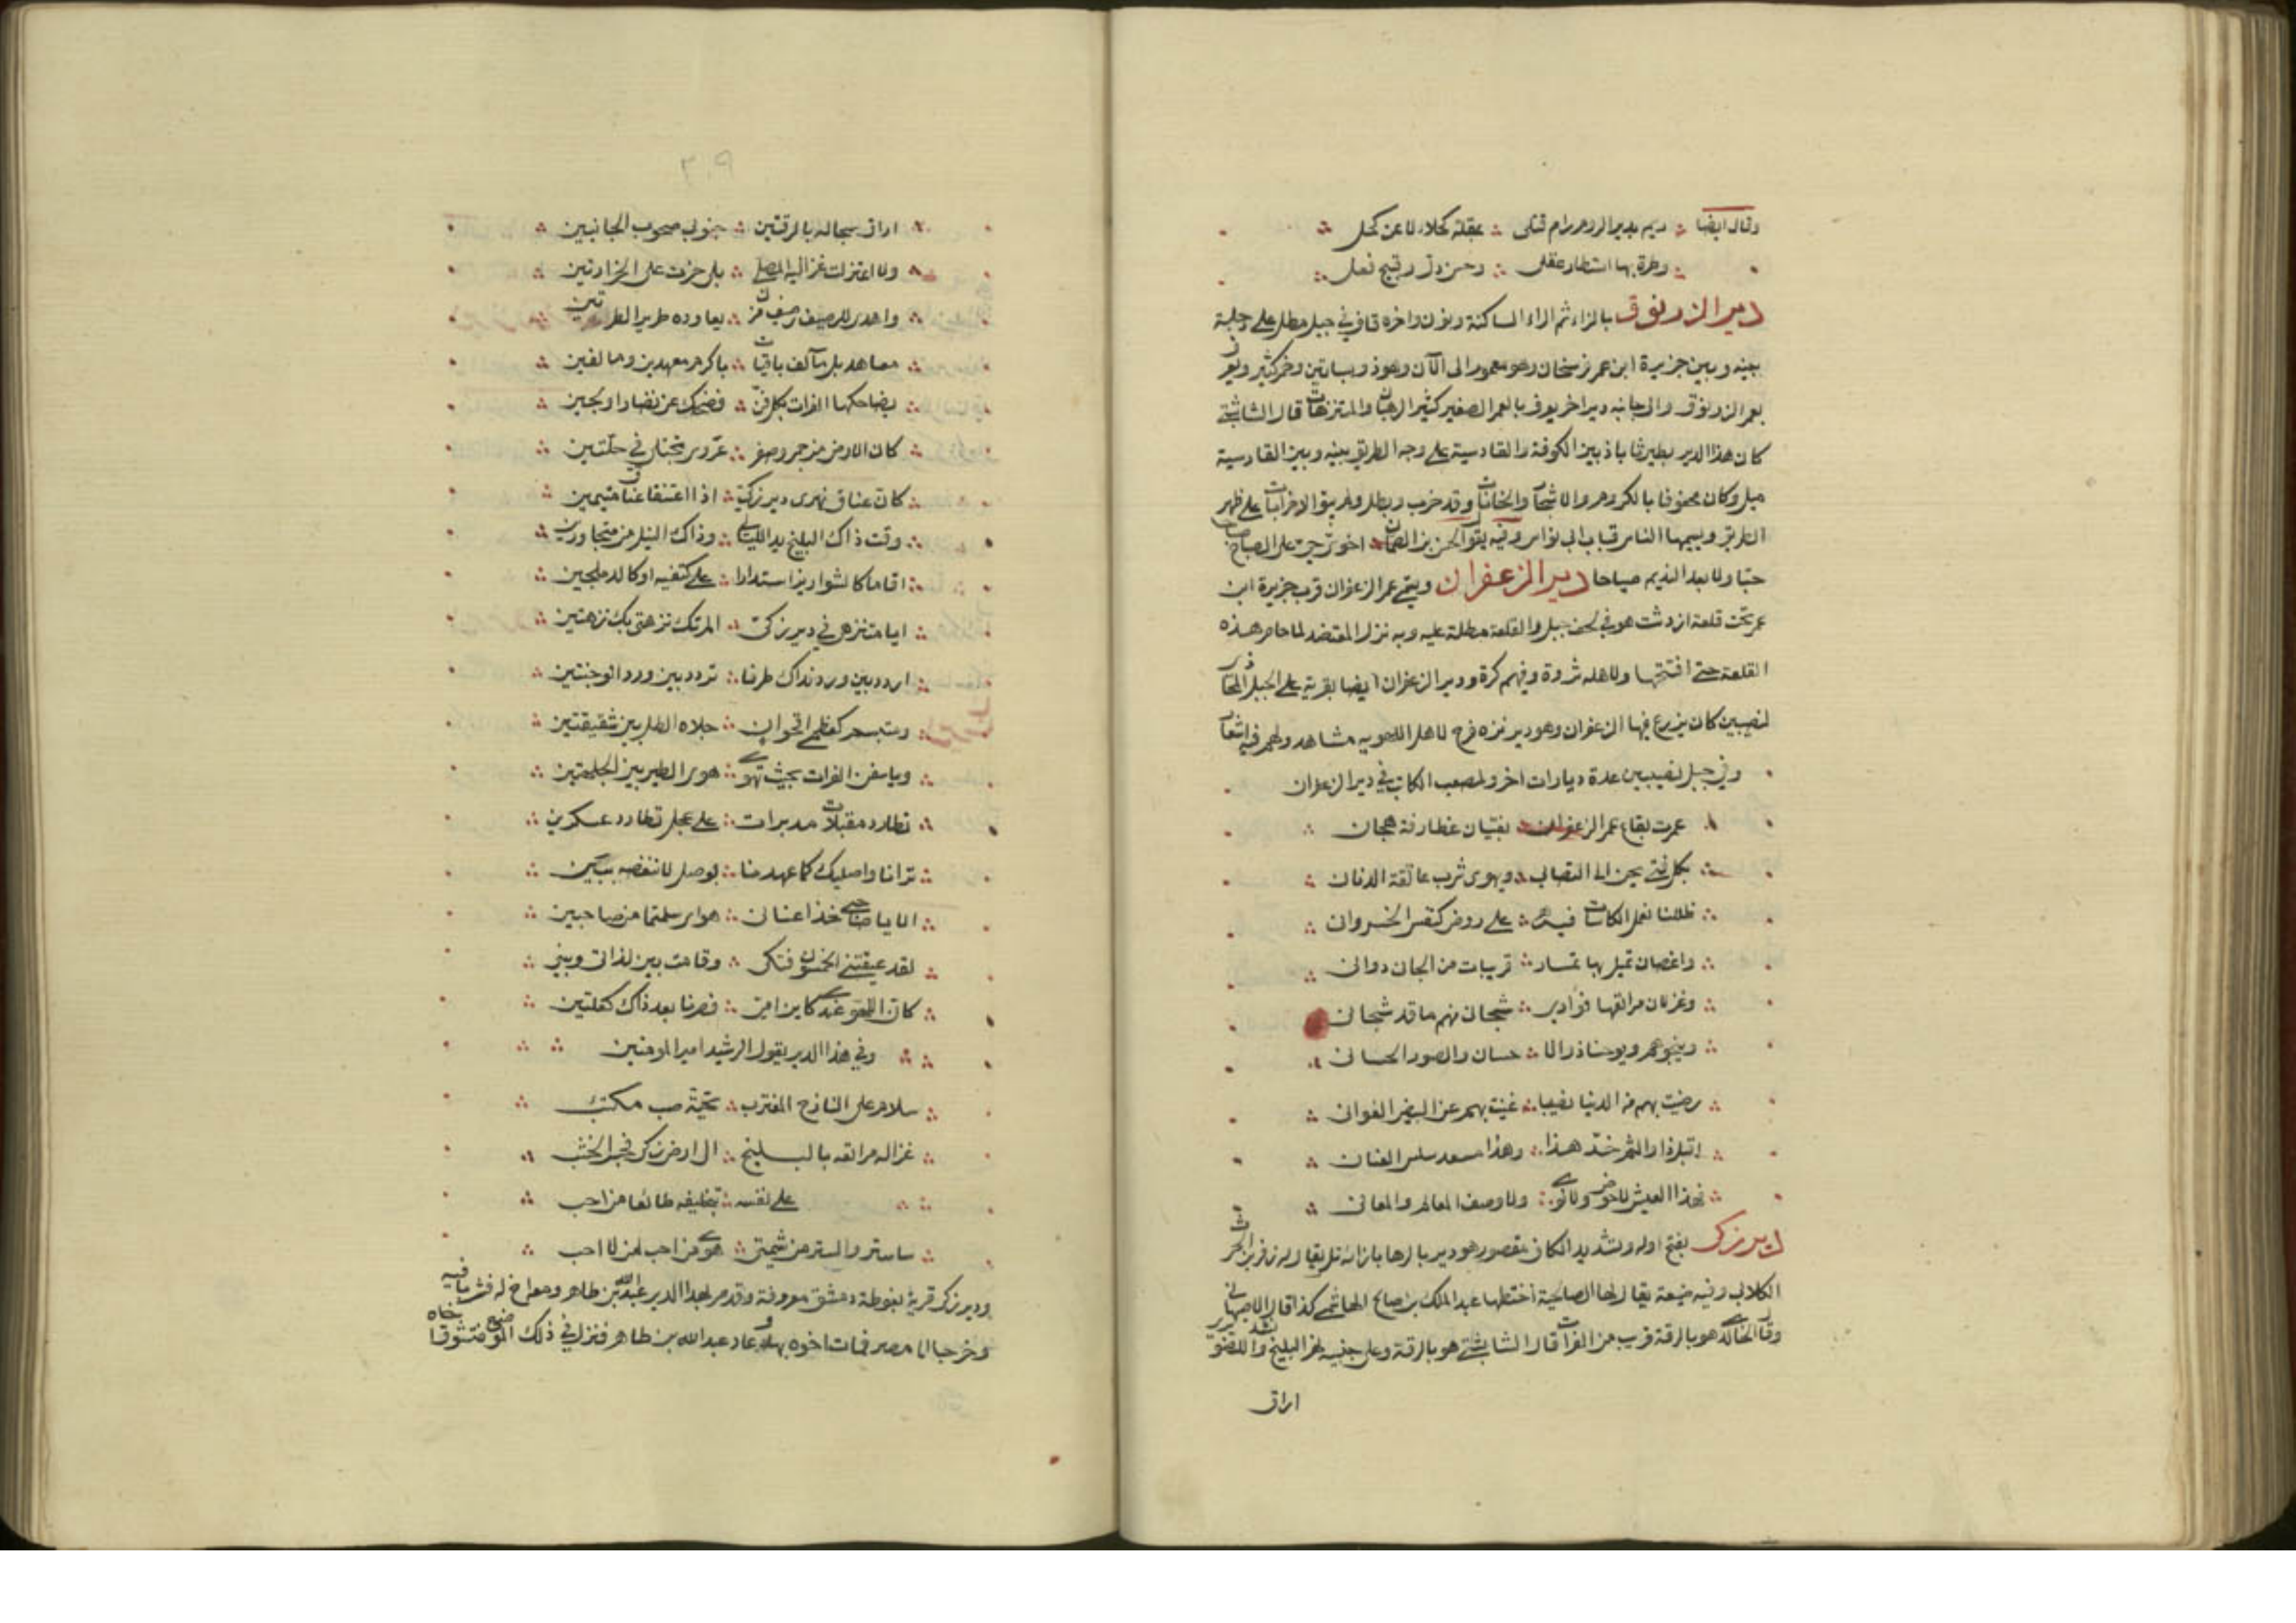 وقال ايضا ؞ ريم بدير الروم رام قتلى ؞ بمقلة كحلاء لا عن كحل
وطرة بها استطار عقلى ؞ وحسن دل وقبيح فعل
دير الزرنوق بالزاء ثم الراء الساكنة ونون واخره قاف في جبل مطل على دجلة
بينه وبين جزيرة ابن عمر فرسخان وهو معمور الى الآن وهو ذو بساتين وخمر كثير ويعرف
بعمر الزرنوق والى جانبه دير اخر يعرف بالعمر الصغير كثير الرهبان والمتنزهات قال الشابشتى
كان هذا الدير بطيزناباذ بين الكوفة والقادسية على وجه الطريق بينه وبين القادسية
ميل وكان محفوفا بالكروم والاشجار والخانات وقد خرب وبطل ولم يبق الا خرابات على ظهر
الطريق ويسميها الناس قباب ابى نواس وفيه يقول الحسين بن الصحاك اخوتى حى على الصبوح صباحا
هبّا ولا بعد النديم صباحا دير الزعفران ويسمى عمر الزعفران قرب جزيرة ابن
عمر تحت قلعة اردمشت هو في لحف جبل والقلعة مطلة عليه وبه نزل المعتضد لما حاصر هذه
القلعة حتى افتتحها ولاهله ثروة وفيهم كثرة ودير الزعفران ايضا بقربه على الجبل المحاذى
لنصيبين كان يزرع فيها الزعفران وهو دير نزه فرح لاهل اللهو به مشاهد ولهم فيه اشعار
وفي جبل نصيبين عدة ديارات اخر ولمصعب الكاتب في دير الزعفران
عمرت بقاع عمر الزعفران ؞ بفتيان غطارفة هجان
بكل فتى يحن الى التصابى ؞ ويهوى شرب عاتقة الدنان
ظللنا نعمل الكاسات فيه ؞ على روض كنقش الخسروانى
واغصان تميل بها ثمار ؞ قريبات من الجانى دوانى
وغزلان مراتعها فؤادى ؞ شجانى منهم ما قد شجانى
وينجوهم ويوحنا ذوالا ؞ حسان والصور الحسان
رضيت بهم من الدنيا نصيبا ؞ غنيت بهم عن البيض الغوانى
اقبل ذا والثم خد هذا ؞ وهذا مسعد سلس العنان
فهذا العيش لا حوض ولا نوى ؞ ولا وصف المعالم والمعانى
دير زكى بفتح اوله وتشديد الكاف مقصور هو دير بالرها بازائه تل يقال له تل زفر بن الحرث
الكلابى وفيه ضيعة يقال لها الصالحية اختطها عبد الملك بن صالح الهاشمى كذا قال الاصبهانى
وقال الخالدى هو بالرقة قريب من الفرات قال الشابشتى هو بالرقة وعلى جنبيه نهر البليخ وانشد للصنوبرى
اراق
٢٠٩
اراق سجاله بالرقتين ؞ جنوبى صحوب الجانبين
ولا اعتزلت عزاليه المصلى ؞ بلى خرت على الخرارتين
واهدى للرصيف رصيف مزن ؞ يعاوده طرير الطرتين
معاهد بل مآلف باقيات ؞ باكرم معهدين ومالفين
يضاحكها الفرات بكل فن ؞ فضحك عن نضار او لجين
كان الارض من حمر وصفر ؞ عروس تجتلى في حلتين
كان عناق نهرى دير زكى ؞ اذا اعتنقا عناق متيمين
وقت ذاك البليخ يد الليالى ؞ وذاك النيل من متجاورين
اقاما كالشوارين استدارا ؞ على كتفيه او كالدملجين
ايا متنزهى في دير زكى ؞ الم تك نزهتى بك نزهتين
اردد بين ورد نداك طرفا ؞ تردد بين ورد الوجنتين
ومبتسم كنظمى اقحوان ؞ جلاه الطل بين شقيقتين
ويا سفن الفرات بحيث تهوى ؞ هوى الطير بين الجلهتين
تطارد مقبلات مدبرات ؞ على عجل تطارد عسكرين
ترانا واصليك كما عهدنا ؞ بوصل لا ننغصه ببين
الا يا صاحبى خذا عنانى ؞ هواى سلمتما من صاحبين
لقد غصبتنى الخمسون فتكى ؞ وقامت بين لذاتى وبينى
كان اللهو عندى كابن امى ؞ فصرنا بعد ذاك كعلتين
وفي هذا الدير يقول الرشيد امير المومنين
سلام على النازح المغترب ؞ تحية صب به مكتئب
غزال مراتعه بالبليخ ؞ الى دير زكى فجسر الخشب
على نفسه ؞ بتخليفه طائعا من احب
ساستر والستر من شيمتى ؞ هوى من احب لمن لا احب
ودير زكى قرية بغوطة دمشق معروفة وقد مر بهذا الدير عبد الله بن طاهر ومعه اخ له فشربا فيه
وخرجا الى مصر فمات اخوه بها وعاد عبد الله بن طاهر فنزل في ذلك الموضع فتشوق اخاه